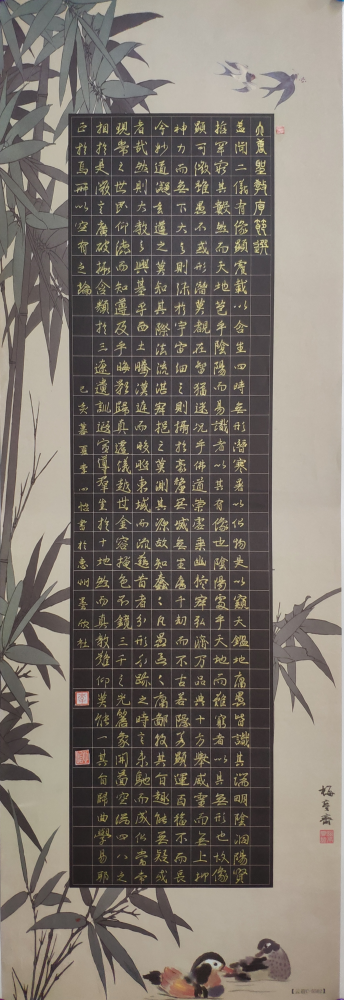 大唐聖教序節選
蓋聞二儀有像顯覆載以含生四時無形潛寒暑以化物是以窺天鑑地庸愚皆識其端明陰洞陽賢
哲罕窮其數然而天地苞乎陰陽而易識者以其有像也陰陽處乎天地而難窮者以其無形也故像
顯可徵雖愚不惑形潛莫覩在智猶迷況乎佛道崇虛乘幽控寂弘濟萬品典十方舉威靈而無上抑
神力而無下大之則彌於宇宙細之則攝於毫釐無滅無生歷千劫而不古若隱若顯運百福而長
今妙道凝玄遵之莫知其際法流湛寂挹之莫測其源故知蠢蠢凡愚區區庸鄙投其旨趣能無疑惑
者哉然則大教之興基乎西土騰漢庭而皎夢照東域而流慈昔者分形分跡之時言未馳而成化當常
現常之世民仰德而知遵及乎晦影歸真遷儀越世金容掩色不鏡三千之光麗象開圖空端四八之
相於是微言廣被拯含類於三途遺訓遐宣導群生於十地然而真教難仰莫能一其旨歸曲學易遵邪
正於焉所以空有之論
己亥暮夏李心怡書於惠州